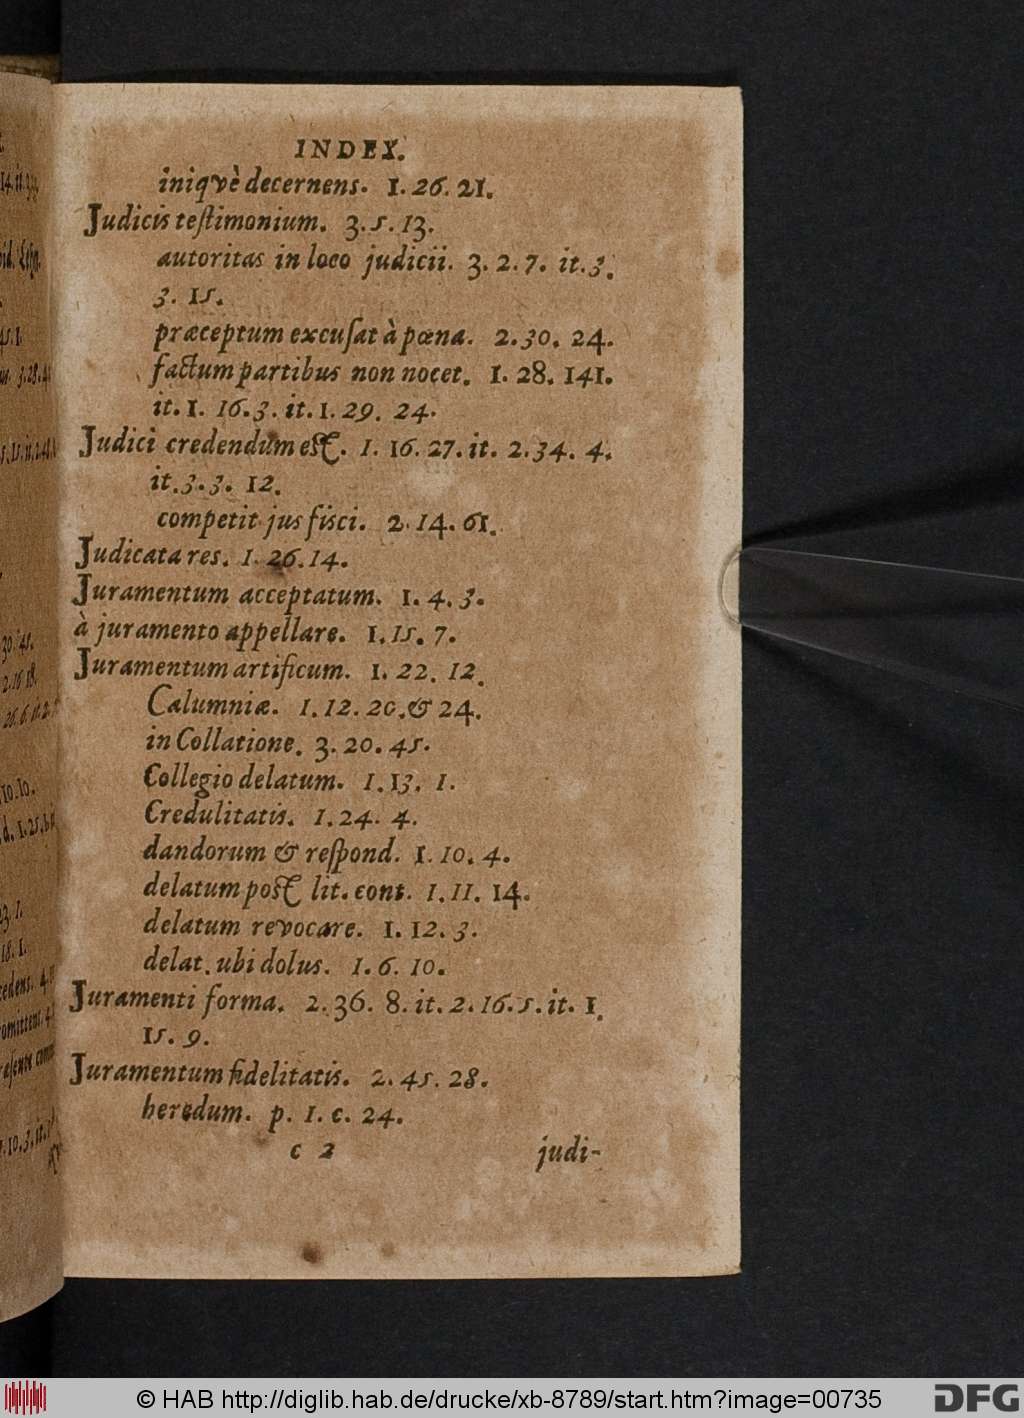 INDEX.
iniqvè decernens. 1. 26. 21.
Judicis teſtimonium. 3. 5. 13.
autoritas in loco judicii. 3. 2. 7. it. 3.
3. 15.
præceptum excuſat à pœna. 2. 30. 24.
factum partibus non nocet. 1. 28. 141.
it. 1. 16. 3. it. 1. 29. 24.
Judici credendum eſt. 1. 16. 27. it. 2. 34. 4.
it. 3. 3. 12.
competit jus fisci. 2. 14. 61.
Judicata res. 1. 26. 14.
Juramentum acceptatum. 1. 4. 3.
à juramento appellare. 1. 15. 7.
Juramentum artificum. 1. 22. 12.
Calumniæ. 1. 12. 20. & 24.
in Collatione. 3. 20. 45.
Collegio delatum. 1. 13. 1.
Credulitatis. 1. 24. 4.
dandorum & reſpond. 1. 10. 4.
delatum poſt lit. cont. 1. 11. 14.
delatum revocare. 1. 12. 3.
delat. ubi dolus. 1. 6. 10.
Juramenti forma. 2. 36. 8. it. 2. 16. 5. it. 1.
15. 9.
Juramentum fidelitatis. 2. 45. 28.
heredum. p. 1. c. 24.
c 2 judi-
© HAB http://diglib.hab.de/drucke/xb-8789/start.htm?image=00735
DFG